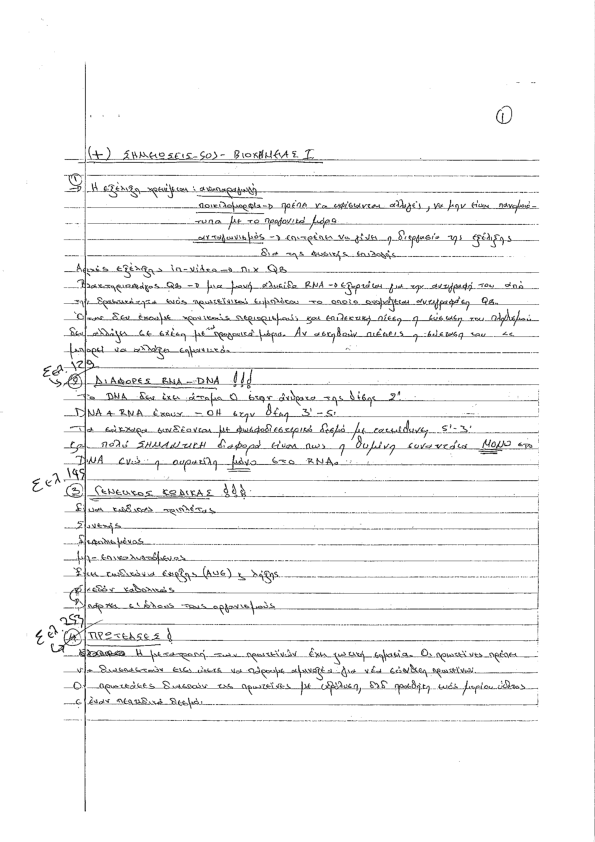 ①
(+) ΣΗΜΕΙΩΣΕΙΣ-SOS- ΒΙΟΧΗΜΕΙΑΣ I
① Η εξέλιξη χρειάζεται: αναπαραγωγή
ποικιλομορφία → πρέπει να υφίστανται αλλαγές, να μην είναι πανομοιό-
τυπα με το προγονικό μόριο
ανταγωνισμός → επιτρέπει να γίνει η διεργασία της εξέλιξης
δια της φυσικής επιλογής
Αρχές εξέλιξης in-vitro → πχ Qβ
Βακτηριοφάγος Qβ → μια μονή αλυσίδα RNA → εξαρτάται για την αντιγραφή του από
την δραστικότητα ενός πρωτεϊνικού συμπλόκου το οποίο ονομάζεται αντιγραφάση Qβ.
Όταν δεν έχουμε χρονικούς περιορισμούς και επιλεκτική πίεση η σύσταση του πληθυσμού
δεν αλλάζει σε σχέση με το προγονικό μόριο. Αν ασκηθούν πιέσεις η σύσταση του
μπορεί να αλλάξει σημαντικά.
Σελ. 129
② ΔΙΑΦΟΡΕΣ RNA-DNA !!!
Το DNA δεν έχει άτομο Ο στην άνθρακα της θέσης 2'
DNA & RNA έχουν -OH στην θέση 3'-5'
Τα σάκχαρα συνδέονται με φωσφοδιεστερικό δεσμό με κατεύθυνση 5'-3'
πολύ ΣΗΜΑΝΤΙΚΗ διαφορά είναι πως η θυμίνη συναντάται ΜΟΝΟ στο
DNA ενώ η ουρακίλη μόνο στο RNA.
Σελ 145
③ ΓΕΝΕΤΙΚΟΣ ΚΩΔΙΚΑΣ !!!
Είναι κώδικας τριπλέτας
Συνεχής
Εκφυλισμένος
μη-επικαλυπτόμενος
Έχει κωδικόνια έναρξης (AUG) & λήξης
Σχεδόν καθολικός
Υπάρχει σ' όλους τους οργανισμούς
Σελ. 253
④ ΠΡΩΤΕΑΣΕΣ !
Η μετατροπή των πρωτεϊνών έχει ζωτική σημασία. Οι πρωτεΐνες πρέπει
να διασπαστούν έτσι ώστε να πάρουμε αμινοξέα για νέα σύνθεση πρωτεϊνών.
Οι πρωτεάσες διασπούν τις πρωτεΐνες με υδρόλυση, δλδ προσθήκη ενός μορίου ύδατος
σ' έναν πεπτιδικό δεσμό.